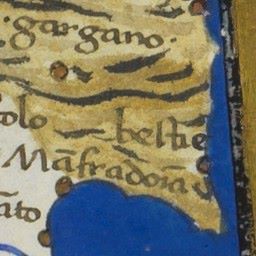 ·gargano·
tolo bestie
Māfradoīa
āto